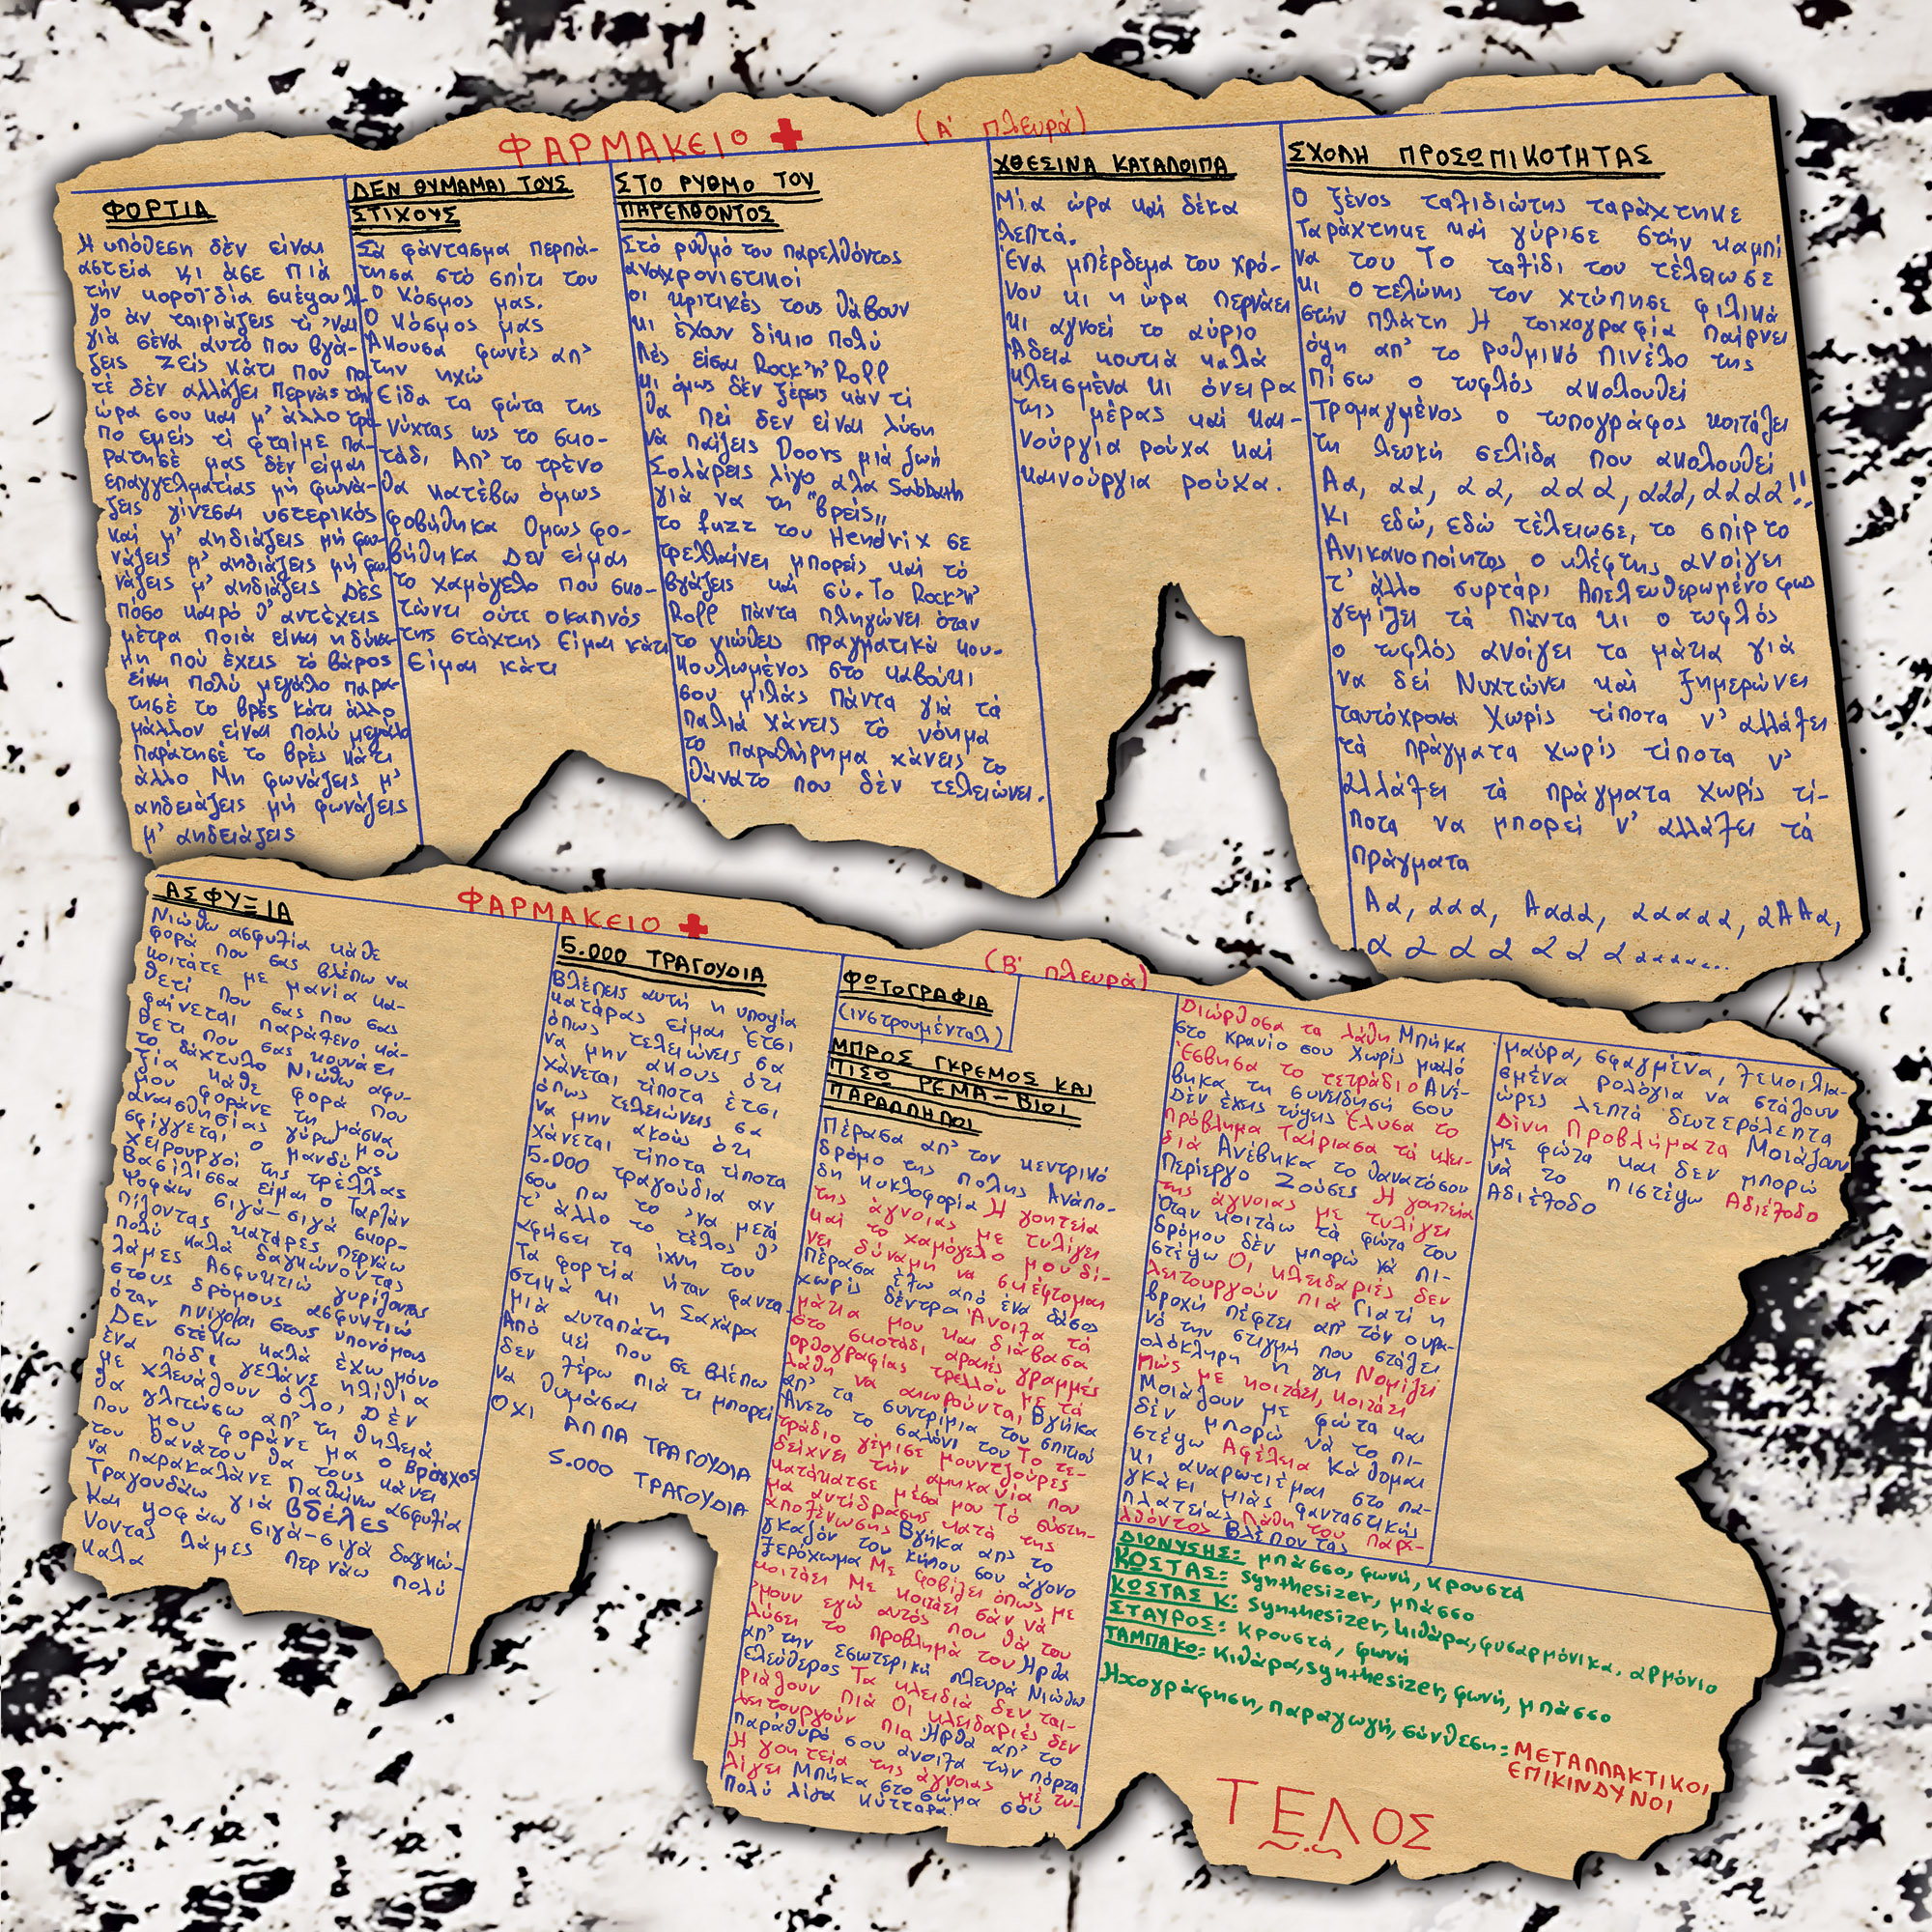 ΦΑΡΜΑΚΕΙΟ
(Α' πλευρά)
ΦΟΡΤΙΑ
Η υπόθεση δέν είναι
αστεία κι άσε πιά
τήν κοροϊδία σκέψου λί-
γο άν ταιριάζεις τί 'ναι
γιά σένα αυτό που βγά-
ζεις Ζείς κάτι που πο-
τέ δέν αλλάζει Περνάς τήν
ώρα σου και μ' άλλο τρό-
πο εμείς τί φταίμε πα-
ράτησέ μας δέν είμαι
επαγγελματίας μή φωνά-
ζεις γίνεσαι υστερικός
καί μ' αηδιάζεις μή φω-
νάζεις μ' αηδιάζεις μή φω-
νάζεις μ' αηδιάζεις Δές
πόσο καιρό θ' αντέχεις
μέτρα ποιά είναι η δύνα-
μη πού έχεις τό βάρος
είναι πολύ μεγάλο παρά-
τησέ το βρές κάτι άλλο
μάλλον είναι πολύ μεγάλο
παράτησέ το βρές κάτι
άλλο Μη φωνάζεις μ'
αηδειάζεις μή φωνάζεις
μ' αηδειάζεις
ΔΕΝ ΘΥΜΑΜΑΙ ΤΟΥΣ
ΣΤΙΧΟΥΣ
Σά φάντασμα περπά-
τησα στό σπίτι του
Ο κόσμος μας.
Ο κόσμος μας
Άκουσα φωνές απ'
την ηχώ
Είδα τα φώτα της
νύχτας ως το σκο-
τάδι Απ' το τρένο
θα κατέβω όμως
φοβήθηκα Όμως φο-
βήθηκα Δεν είμαι
το χαμόγελο πού σκο-
τώνει ούτε ο καπνός
της στάχτης Είμαι κάτι
Είμαι κάτι
ΣΤΟ ΡΥΘΜΟ ΤΟΥ
ΠΑΡΕΛΘΟΝΤΟΣ
Στό ρυθμό του παρελθόντος
αναχρονιστικοί
οι κριτικές τους θάβουν
κι έχουν δίκιο πολύ
Λές είσαι Rock 'n' Roll
κι όμως δέν ξέρεις κάν τί
θα πεί δεν είναι λύση
νά παίζεις Doors μιά ζωή
Σολάρεις λίγο αλα Sabbath
γιά να τη "βρείς„
το fuzz του Hendrix σε
τρελλαίνει μπορείς καί τό
βγάζεις καί σύ. Το Rock 'n'
Roll πάντα πληγώνει όταν
το νιώθεις πραγματικά κου-
κουλωμένος στο καβούκι
σου μιλάς πάντα γιά τά
παλιά χάνεις τό νόημα
το παραλήρημα χάνεις το
θάνατο που δέν τελειώνει.
ΧΘΕΣΙΝΑ ΚΑΤΑΛΟΙΠΑ
Μία ώρα καί δέκα
λεπτά.
Ένα μπέρδεμα του χρό-
νου κι η ώρα περνάει
κι αγνοεί το αύριο
Άδεια κουτιά καλά
κλεισμένα κι όνειρα
της μέρας καί και-
νούργια ρούχα καί
καινούργια ρούχα.
ΣΧΟΛΗ ΠΡΟΣΩΠΙΚΟΤΗΤΑΣ
Ο ξένος ταξιδιώτης ταράχτηκε
Ταράχτηκε καί γύρισε στήν καμπί
να του Το ταξίδι του τέλειωσε
κι ο τελώνης τον χτύπησε φιλικά
στήν πλάτη Η τοιχογραφία παίρνει
όψη απ' το ρυθμικό πινέλο της
πίσω ο τυφλός ακολουθεί
Τρομαγμένος ο τυπογράφος κοιτάζει
τη λευκή σελίδα που ακολουθεί
Αα, αα, αα, ααα, ααα, αααα!!
Κι εδώ, εδώ τέλειωσε, το σπίρτο
Ανικανοποίητος ο κλέφτης ανοίγει
τ' άλλο συρτάρι Απελευθερωμένο φως
γεμίζει τά πάντα κι ο τυφλός
ο τυφλός ανοίγει τα μάτια γιά
να δεί Νυχτώνει καί ξημερώνει
ταυτόχρονα Χωρίς τίποτα ν' αλλάξει
τά πράγματα χωρίς τίποτα ν'
αλλάξει τά πράγματα χωρίς τί-
ποτα να μπορεί ν' αλλάξει τά
πράγματα
Αα, ααα, Αααα, ααααα, αΑΑα,
α α α α α α α α α α α α...
ΦΑΡΜΑΚΕΙΟ
(Β' πλευρά)
ΑΣΦΥΞΙΑ
Νιώθω ασφυξία κάθε
φορά που σας βλέπω να
κοιτάτε με μανία κά-
θετί που σας που σας
φαίνεται παράξενο κά-
θετι που σας κουνάει
το δάχτυλο Νιώθω ασφυ-
ξία κάθε φορά που
μου φοράνε τη μάσκα
αναισθησίας γύρω μου
σφίγγεται ο μανδύας
χειρουργοί της τρέλλας
Βασίλισσα είμαι ο Ταρζάν
Ψοφάω σιγά-σιγά σκορ-
πίζοντας κατάρες περνάω
πολύ καλά δαγκώνοντας
λάμες Ασφυκτιώ γυρίζοντας
στους δρόμους ασφυκτιώ
όταν πνίγομαι στους υπονόμους
Δεν στέκω καλά έχω μόνο
ένα πόδι γελάνε ηλίθια
με χλευάζουν όλοι Δέν
θα γλιτώσω απ' τη θηλειά
που μου φοράνε μα ο Βρόγχος
του θανάτου θα τους κάνει
να παρακαλάνε Παθαίνω ασφυξία
Τραγουδάω γιά Βδέλες
και ψοφάω σιγά-σιγά δαγκώ-
νοντας λάμες περνάω πολύ
καλά
5.000 ΤΡΑΓΟΥΔΙΑ
Βλέπεις αυτή η υποψία
κατάρας είμαι έτσι
όπως τελειώνεις σα
να μην ακούς ότι
χάνεται τίποτα έτσι
όπως τελειώνεις σα
να μην ακούς ότι
χάνεται τίποτα τίποτα
5.000 τραγούδια αν
σου πω το 'να μετά
τ' άλλο το τέλος θ'
αφήσει τα ίχνη του
Τα φορτία ήταν φαντα-
στικά κι η Σαχάρα
μιά αυταπάτη
Από κεί που σε βλέπω
δεν ξέρω πιά τι μπορεί
να θυμάσαι
ΟΧΙ ΑΛΛΑ ΤΡΑΓΟΥΔΙΑ
5.000 ΤΡΑΓΟΥΔΙΑ
ΦΩΤΟΓΡΑΦΙΑ
(ινστρουμένταλ)
ΜΠΡΟΣ ΓΚΡΕΜΟΣ ΚΑΙ
ΠΙΣΩ ΡΕΜΑ-ΒΙΟΙ
ΠΑΡΑΛΛΗΛΟΙ
Πέρασα απ' τον κεντρικό
δρόμο της πόλης Ανάπο-
δη κυκλοφορία Η γοητεία
της άγνοιας με τυλίγει
καί το χαμόγελο μου δί-
νει δύναμη να σκέφτομαι
Πέρασα έξω από ένα δάσος
χωρίς δέντρα Άνοιξα τά
μάτια μου και διάβασα
στο σκοτάδι αραιές γραμμές
ορθογραφίας τρελλού με τά
λάθη να αιωρούνται Βγήκα
απ' τα συντρίμια του σπιτιού
Άνετο το σαλόνι του Το τε-
τράδιο γέμισε μουντζούρες
δείχνει τήν αμηχανία που
κατάκατσε μέσα μου Τό σύστη-
μα αντίδρασης κατά της
αποξένωσης Βγήκα απ' το
γκαζόν του κήπου σου άγονο
ξερόχωμα Με φοβίζει όπως με
κοιτάει Με κοιτάει σάν νά
'μουν εγώ αυτός που θά του
λύσει το πρόβλημά του Ήρθα
απ' την εσωτερική πλευρά Νιώθω
ελεύθερος Τα κλειδιά δεν ται-
ριάζουν πιά Οι κλειδαριές δεν
λειτουργούν πια Ήρθα απ' το
παράθυρό σου άνοιξα τήν πόρτα
Η γοητεία της άγνοιας με τυ-
λίγει Μπήκα στο σώμα σου
πολύ λίγα κύτταρα.
Διώρθοσα τα λάθη Μπήκα
στο κρανίο σου χωρίς μυαλό
Έσβησα το τετράδιο Ανέ-
βηκα τη συνείδησή σου
Δέν έχεις τύψεις Έλυσα το
πρόβλημα Ταίριασα τά κλει-
διά Ανέβηκα το θανατό σου
Περίεργο Ζούσες Η γοητεία
της άγνοιας με τυλίγει
Όταν κοιτάω τά φώτα του
δρόμου δέν μπορώ νά πι-
στέψω Οι κλειδαριές δεν
λειτουργούν πιά Γιατί η
βροχή πέφτει απ' τόν ουρα-
νό την στιγμή που στάζει
ολόκληρη η γη Νομίζει
πώς με κοιτάει, κοιτάει
Μοιάζουν με φώτα και
δέν μπορώ νά το πι-
στέψω Αφέλεια Κάθομαι
κι αναρωτιέμαι στο πα-
γκάκι μιάς φανταστικής
πλατείας Λάθη του παρε-
λθόντος Βλέποντας
μαύρα, σφαγμένα, ξεκοιλια-
σμένα ρολόγια να στάζουν
ώρες λεπτά δευτερόλεπτα
Δίνη Προβλήματα Μοιάζουν
με φώτα και δεν μπορώ
νά το πιστέψω Αδιέξοδο
Αδιέξοδο
ΔΙΟΝΥΣΗΣ: μπάσσο, φωνή, κρουστά
ΚΩΣΤΑΣ: synthesizer, μπάσσο
ΚΩΣΤΑΣ Κ: synthesizer, κιθάρα, φυσαρμόνικα, αρμόνιο
ΣΤΑΥΡΟΣ: κρουστά, φωνή
ΤΑΜΠΑΚΟ: κιθάρα, synthesizer, φωνή, μπάσσο
Ηχογράφηση, παραγωγή, σύνθεση: ΜΕΤΑΛΛΑΚΤΙΚΟΙ
ΕΠΙΚΙΝΔΥΝΟΙ
ΤΕΛΟΣ